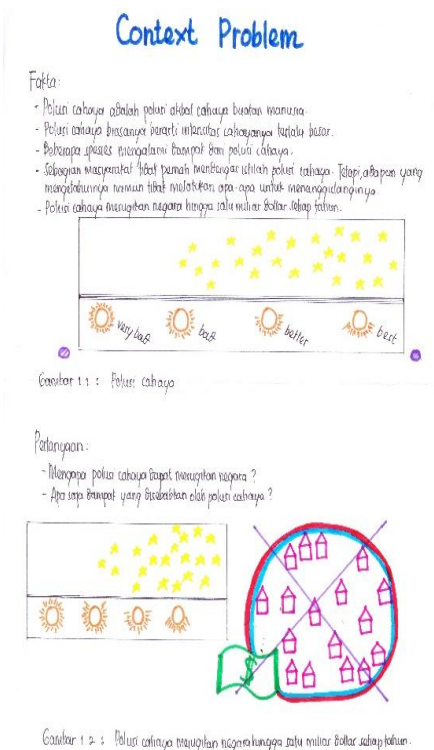 Context Problem
Fakta:
- Polusi cahaya adalah polusi akibat cahaya buatan manusia.
- Polusi cahaya biasanya berarti intensitas cahayanya terlalu besar.
- Beberapa spesies mengalami dampak dari polusi cahaya.
- Sebagian masyarakat tidak pernah mendengar istilah polusi cahaya. Tetapi, ada pun yang
mengetahuinya namun tidak melakukan apa-apa untuk menanggulanginya
- Polusi cahaya merugikan negara hingga satu miliar dollar setiap tahun.
very bad
bad
better
best
Gambar 1.1 : Polusi cahaya
Pertanyaan:
- Mengapa polusi cahaya dapat merugikan negara ?
- Apa saja dampak yang disebabkan oleh polusi cahaya ?
Gambar 1.2 : Polusi cahaya merugikan negara hingga satu miliar dollar setiap tahun.